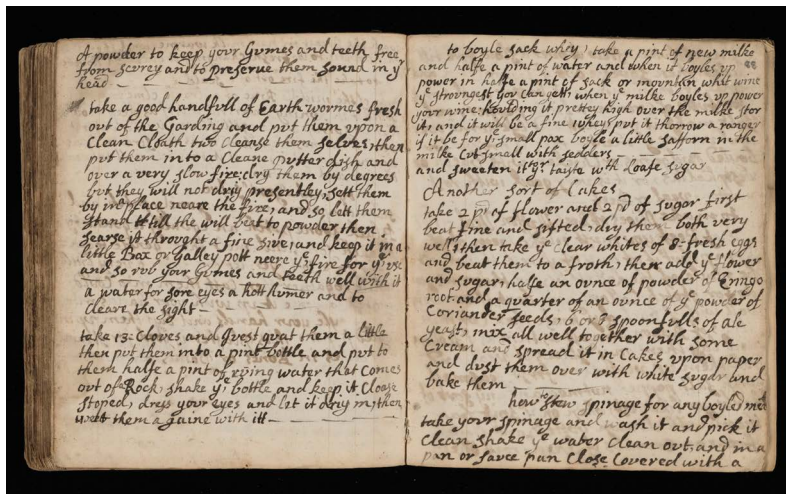 A powder to keep your Gumes and teeth free
from scurey and to preserve them sound in yr
head
take a good handfull of Earth wormes fresh
out of the Garding and put them upon a
Clean Cloath two Cleanse them selves, then
put them into a Cleane putter dish and
over a very slow fire: dry them by degrees
but they will not driy presentley, sett them
by in place neare the fire, and so lett them
stand till the will beat to powder then
searse it throught a fine sive, and keep it in a
little Box or Galley pott neere ye fire for yr use
and so rub your Gumes and teeth well with it
a water for sore eyes a hott humer and to
cleare the sight
take 13: Cloves and Just a little
then put them into a pint bottle and put to
them halfe a pint of water that Comes
out of a Rock, shake ye bottle and keep it Cloase
stoped, dress your eyes and let it driy in, then
wett them againe with itt
to boyle sack whey, take a pint of new milke
and halfe a pint of water and when it boyles up
power in halfe a pint of sack or mountin whit wine
ye strongest you Can gett, when ye milke boyles up power
your wine, houlding it prettey high over the milke stor
it, and it will be a fine whey, put it thorrow a ranger
if it be for ye small pax boyle a little safforn in the
milke Cut small with
and sweeten it yor taiste wth Loafe sugar
Another sort of Cakes
take 2 pd of flower and 2 pd of sugar first
beat fine and sifted, dry them both very
well, then take ye clear whites of 8 fresh eggs
and beat them to a froth, then add ye flower
and sugar, halfe an ounce of powder of Eringo
root and a quarter of an ounce of ye powder of
Coriander seeds, 6 or 7 spoonfulls of ale
yeast, mix all well together with some
Cream and spread it in Cakes upon paper
and dust them over with white sugar and
bake them
how to stew spinage for any boyled
take your spinage and wash it and pick it
Clean shake ye water clean out and in a
pan or sauce pan Close Covered with a